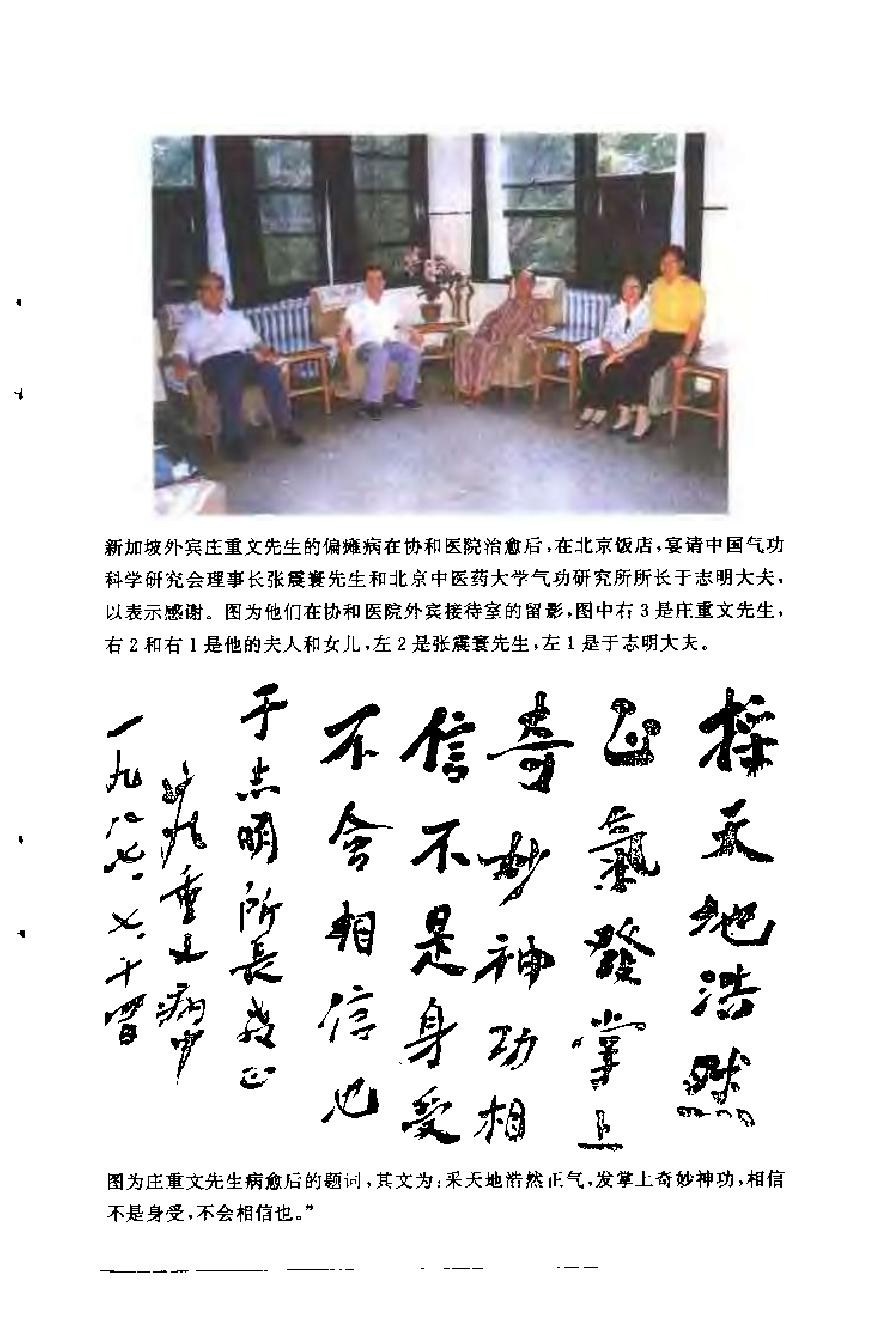 新加坡外宾庄重文先生的偏瘫病在协和医院治愈后,在北京饭店,宴请中国气功
科学研究会理事长张震寰先生和北京中医药大学气功研究所所长于志明大夫,
以表示感谢。图为他们在协和医院外宾接待室的留影,图中右3是庄重文先生,
右2和右1是他的夫人和女儿,左2是张震寰先生,左1是于志明大夫。
採天地浩然
正氣發掌上
奇妙神功相
信不是身受
不会相信也
于志明所長教正
重文病中
一九八七.七.十四日
图为庄重文先生病愈后的题词,其文为:采天地浩然正气,发掌上奇妙神功,相信
不是身受,不会相信也。”